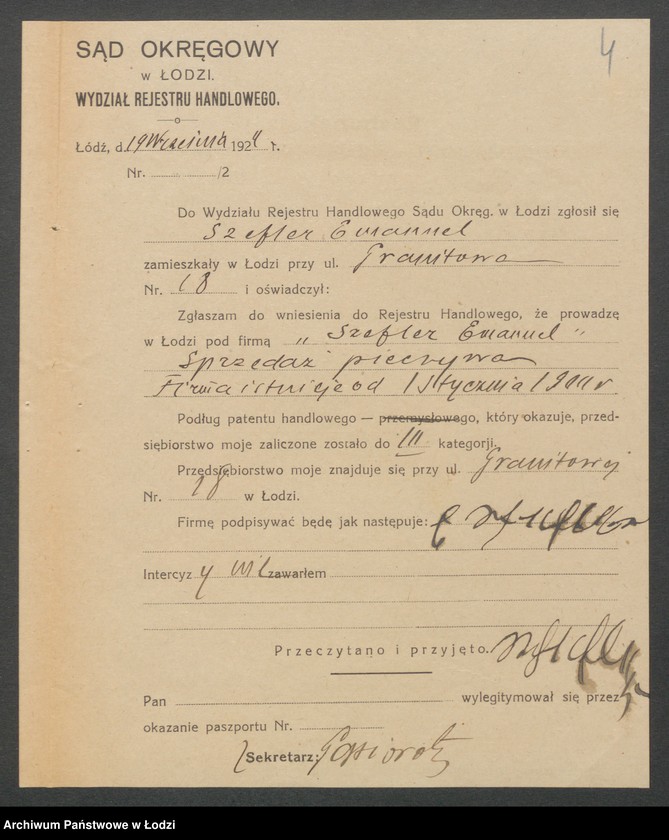 4
SĄD OKRĘGOWY
w ŁODZI.
WYDZIAŁ REJESTRU HANDLOWEGO.
Łódź, d. 19 Września 1924 r.
Nr. /2
Do Wydziału Rejestru Handlowego Sądu Okręg. w Łodzi zgłosił się
Szefler Emanuel
zamieszkały w Łodzi przy ul. Granitowa
Nr. 18 i oświadczył:
Zgłaszam do wniesienia do Rejestru Handlowego, że prowadzę
w Łodzi pod firmą „Szefler Emanuel"
Sprzedaż pieczywa
Firma istnieje od 1 Stycznia 1900 r
Podług patentu handlowego — przemysłowego, który okazuje, przed-
siębiorstwo moje zaliczone zostało do III kategorji.
Przedsiębiorstwo moje znajduje się przy ul. Granitowej
Nr. 18 w Łodzi.
Firmę podpisywać będę jak następuje:
Intercyzy nie zawarłem
Przeczytano i przyjęto.
Pan wylegitymował się przez
okazanie paszportu Nr.
Sekretarz:
Archiwum Państwowe w Łodzi